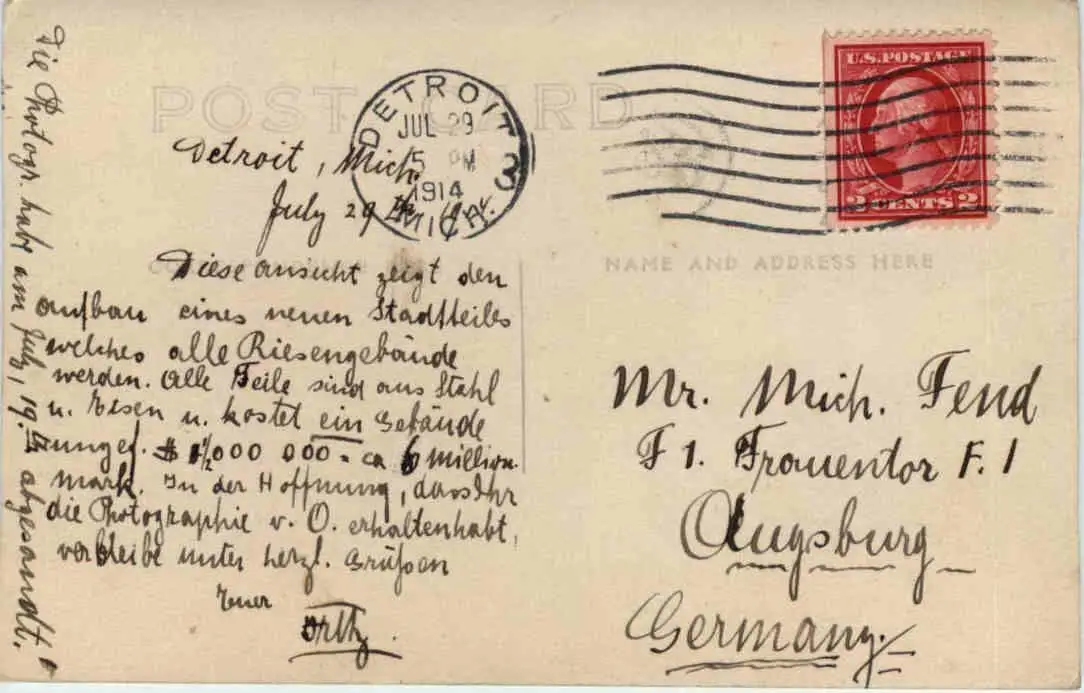 POST CARD
DETROIT
JUL 29
5 PM
1914
MICH.
3
U.S. POSTAGE
2 CENTS 2
Detroit, Mich.
July 29
NAME AND ADDRESS HERE
Diese ansicht zeigt den
aufbau eines neuen Stadtteiles
welches alle Riesengebäude
werden. Alle Teile sind aus Stahl
u. Eisen u. kostet ein Gebäude
ungef. $ 1½000 000 = ca 6 million.
mark. In der Hoffnung, dass Ihr
die Photographie v. O. erhalten habt,
verbleibe unter herzl. Grüßen
Euer
Die Photogr. habe am July, 19. abgesandt.
Mr. Mich. Fend
F 1. Frauentor F. 1
Augsburg
Germany.